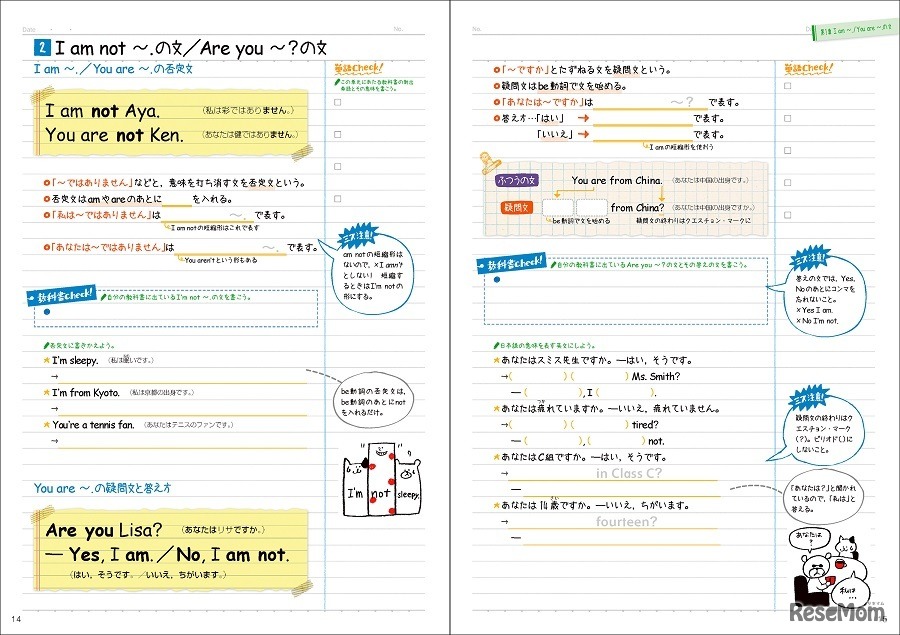 Date　・　・
No.
2 I am not ～.の文／Are you ～？の文
I am ～.／You are ～.の否定文
I am not Aya.　（私は彩ではありません。）
You are not Ken.　（あなたは健ではありません。）
●「～ではありません」などと，意味を打ち消す文を否定文という。
●否定文はamやareのあとに　　を入れる。
●「私は～ではありません」は　　～．で表す。
I am notの短縮形はこれで表す
●「あなたは～ではありません」は　　～．で表す。
You aren'tという形もある
教科書Check!　自分の教科書に出ているI'm not ～.の文を書こう。
否定文に書きかえよう。
★I'm sleepy.　（私は眠いです。）
→
★I'm from Kyoto.　（私は京都の出身です。）
→
★You're a tennis fan.　（あなたはテニスのファンです。）
→
You are ～.の疑問文と答え方
Are you Lisa?　（あなたはリサですか。）
― Yes, I am.／No, I am not.
（はい，そうです。／いいえ，ちがいます。）
単語Check!
この単元にあたる教科書の新出
単語とその意味を書こう。
ミス注意!
am notの短縮形は
ないので，×I amn't
としない！　短縮す
るときはI'm notの
形にする。
be動詞の否定文は，
be動詞のあとにnot
を入れるだけ。
I'm not sleepy.
14
No.
第1章 I am ～./You are ～.の文
●「～ですか」とたずねる文を疑問文という。
●疑問文はbe動詞で文を始める。
●「あなたは～ですか」は　　～？で表す。
●答え方…「はい」　→　　で表す。
「いいえ」　→　　で表す。
I amの短縮形を使おう
ふつうの文　You are from China.　（あなたは中国の出身です。）
疑問文　from China?　（あなたは中国の出身ですか。）
be動詞で文を始める　疑問文の終わりはクエスチョン・マークに
教科書Check!　自分の教科書に出ているAre you ～?の文とその答えの文を書こう。
日本語の意味を表す英文にしよう。
★あなたはスミス先生ですか。―はい，そうです。
→(　　)(　　) Ms. Smith?
― (　　), I (　　).
★あなたは疲れていますか。―いいえ，疲れていません。
→(　　)(　　) tired?
― (　　), (　　) not.
★あなたはC組ですか。―はい，そうです。
→　in Class C?
―
★あなたは14歳ですか。―いいえ，ちがいます。
→　fourteen?
―
単語Check!
ミス注意!
答えの文では，Yes,
Noのあとにコンマを
忘れないこと。
×Yes I am.
×No I'm not.
ミス注意!
疑問文の終わりはク
エスチョン・マーク
(？)。ピリオド(.)に
しないこと。
「あなたは？」と聞かれ
ているので，「私は」と
答える。
あなたは
？
私は
…
ReseMom